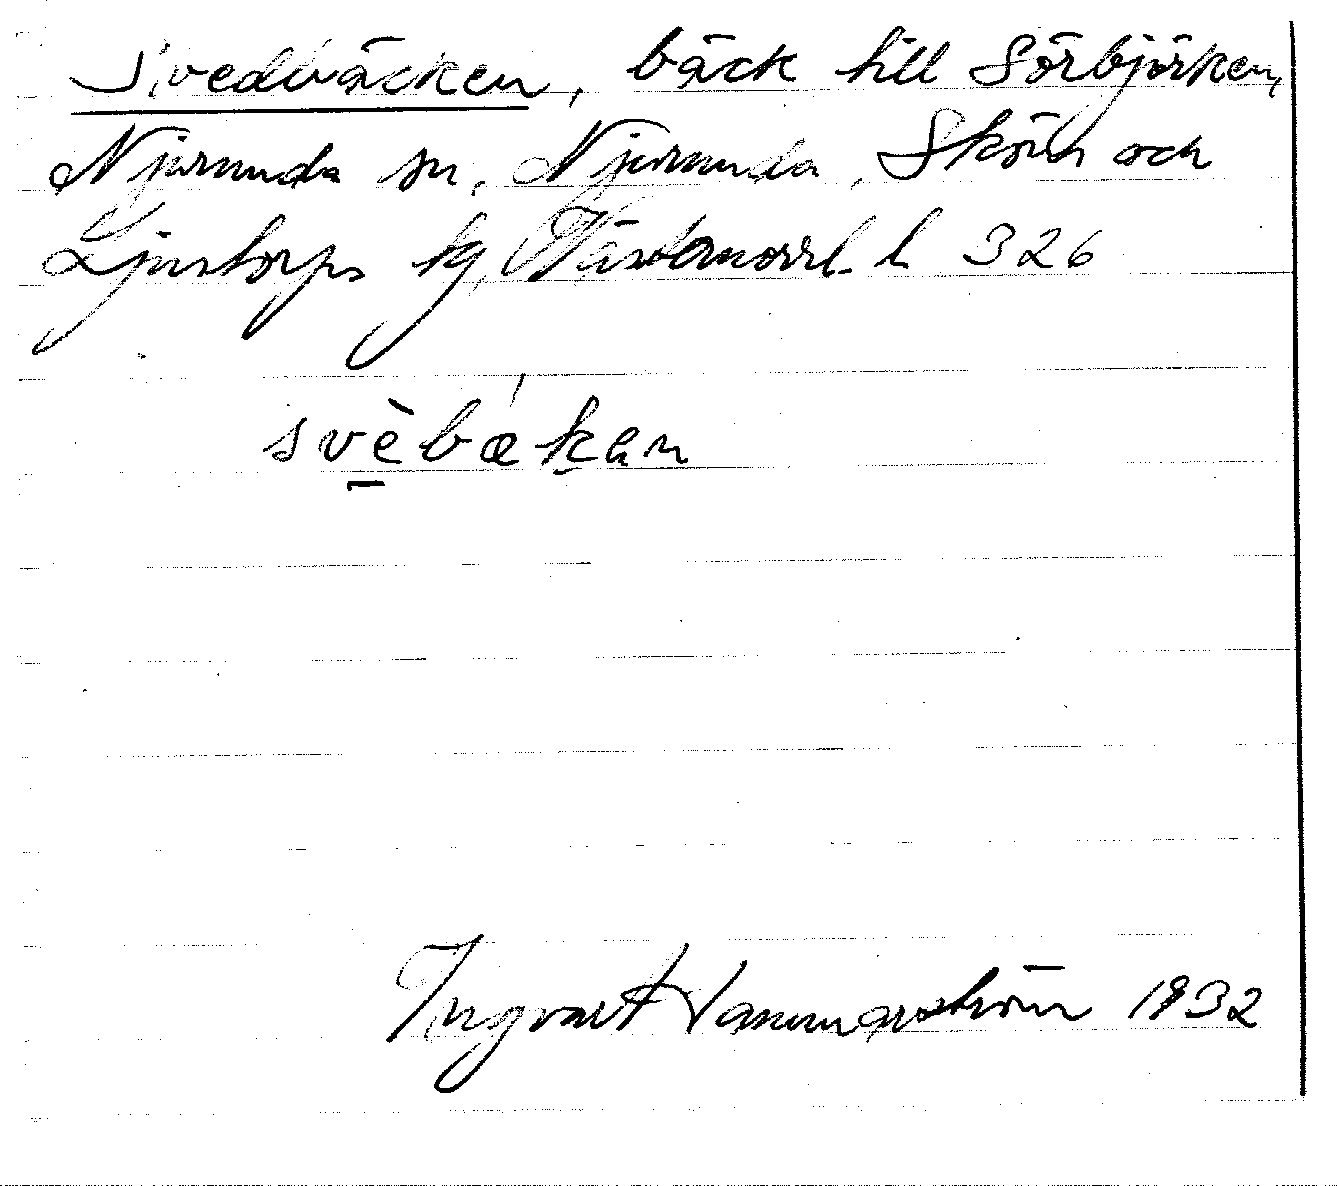 Svedbäcken, bäck till Sörbjörken,
Njurunda sn, Njurunda, Sköns och
Ljustorps tg, Västernorrl. l 326
svèbækan
Ingvar Hammarström 1932